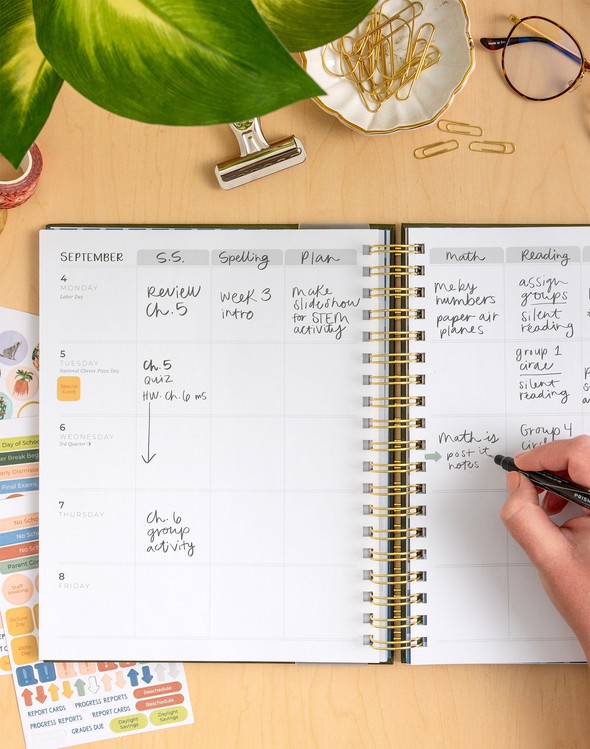 SEPTEMBER
S.S.
Spelling
Plan
4
MONDAY
Labor Day
Review
Ch. 5
week 3
intro
make
slideshow
for STEM
activity
5
TUESDAY
National Cheese Pizza Day
Special
Event
Ch. 5
QUIZ
HW. Ch. 6 ms
6
WEDNESDAY
3rd Quarter
7
THURSDAY
Ch. 6
group
activity
8
FRIDAY
Math
Reading
numbers
paper air
planes
assign
groups
silent
reading
group 1
circle
silent
reading
Math is
post it
notes
Group 4
Day of School
Break
Early Dismissal
Final Exams
No School
No
No
Parent
Staff
Meeting
REPORT CARDS
PROGRESS REPORTS
Reschedule
PROGRESS REPORTS
REPORT CARDS
Reschedule
GRADES DUE
Daylight
Savings
Daylight
Savings